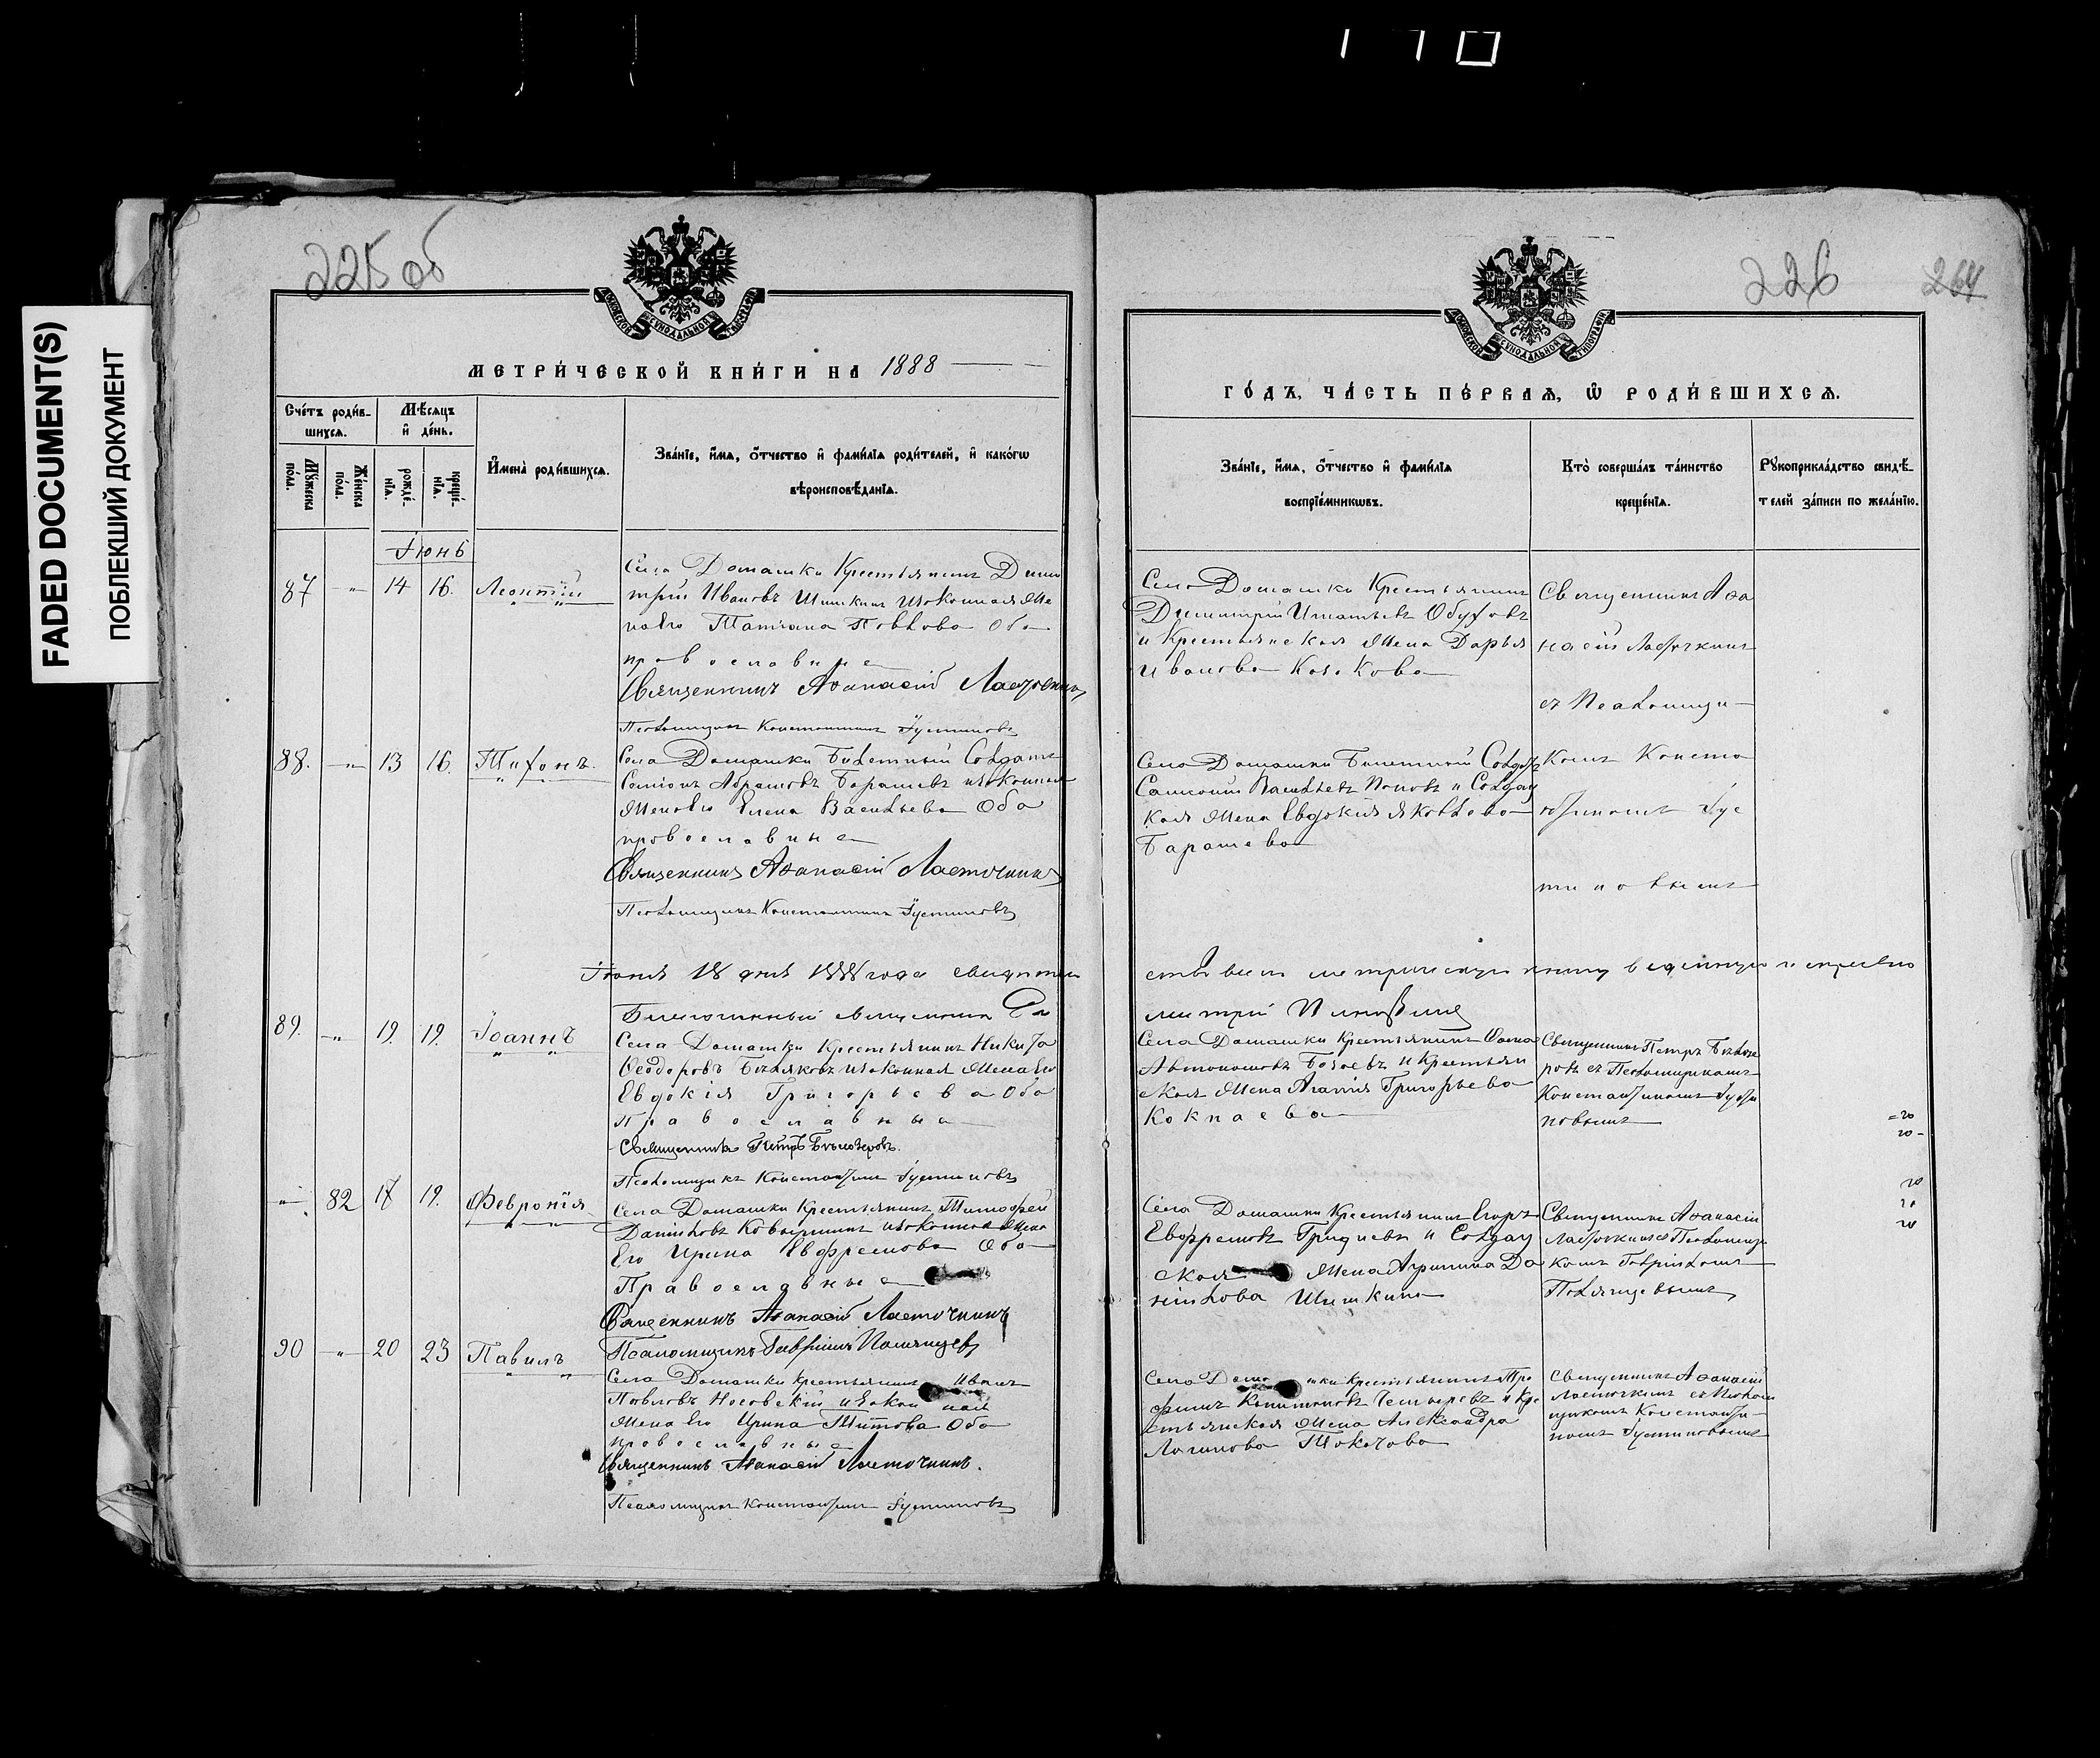 FADED DOCUMENT(S)
ПОБЛЕКШИЙ ДОКУМЕНТ
225 об
МЕТРИ́ЧЕСКОЙ КНИ́ГИ НА 1888
Сче́тъ роди́в-
шихсѧ.
Мѣ́сѧцъ
и҆ де́нь.
Мꙋ́жеска
по́ла.
Же́нска
по́ла.
рожде́-
нїѧ.
креще́-
нїѧ.
И҆мена̀ роди́вшихсѧ.
Зва́нїе, и҆́мѧ, ѻ҆́тчество и҆ фами́лїѧ роди́телей, и҆ како́гѡ
вѣроисповѣ́данїѧ.
Іюнь
87 " 14 16. Леонтій
Села Домашки Крестьянинъ Дими
трій Ивановъ Шишкинъ и законная Же
на его Татіана Павлова Оба
православные
Священникъ Аѳанасій Ласточкинъ
Псаломщикъ Константинъ Іустиновъ
88. " 13 16. Тихонъ.
Села Домашки Билетный Солдатъ
Семіонъ Абрамовъ Барашевъ и законная
Жена его Елена Васильева Оба
православные
Священникъ Аѳанасій Ласточкинъ
Псаломщикъ Константинъ Іустиновъ
Іюня 18 дня 1888 года свидѣтель
Благочинный священникъ Ди
89. " 19. 19. Іоаннъ
Села Домашки Крестьянинъ Никита
Ѳеодоровъ Бѣляковъ и законная Жена его
Евдокія Григорьева Оба
Православные
Священникъ Петръ Бѣлозеровъ.
Псаломщикъ Константинъ Іустиновъ
" 82 17 19. Февронія
Села Домашки Крестьянинъ Тимофей
Даниловъ и законная Жена
Его Ирина Евфремова Оба
Православные
Священникъ Аѳанасій Ласточкинъ
Псаломщикъ Гавріилъ Полянцевъ
90 " 20 23 Павилъ
Села Домашки Крестьянинъ Иванъ
Павловъ Носовскій и законная
Жена его Ирина Титова Оба
православные
Священникъ Аѳанасій Ласточкинъ.
Псаломщикъ Константинъ Іустиновъ
226 264
ГО́ДЪ, ЧА́СТЬ ПЕ́РВАѦ, Ѡ҆ РОДИ́ВШИХСѦ.
Зва́нїе, и҆́мѧ, ѻ҆́тчество и҆ фами́лїѧ
воспрїе́мникѡвъ.
Кто̀ соверша́лъ та́инство
креще́нїѧ.
Рꙋкоприкла́дство свидѣ́-
телей за́писи по жела́нїю.
Села Домашки Крестьянинъ
Димитрій Игнатьевъ Обуховъ
и Крестьянская Жена Дарья
Иванова
Священникъ Аѳа
насій Ласточкинъ
съ Псаломщи-
комъ Конста
нтиномъ Іус
тиновымъ
Села Домашки Билетный Солдатъ
Самсонъ Васильевъ Поповъ и Солдат
кая Жена Евдокія Яковлева
Барашева
ствовалъ метрическую книгу
митрій
Села Домашки Крестьянинъ Ѳома
Автономовъ и Крестьян
ская Жена Агапія Григорьева
Кокнаева
Священникъ Петръ Бѣлозе
ровъ съ Псаломщикомъ
Константиномъ Іусти
новымъ
Села Домашки Крестьянинъ Егоръ
Евфремовъ Гридневъ и Солдат
ская Жена Агрипина Да
нилова Шишкина
Священникъ Аѳанасій
Ласточкинъ съ Псаломщи
комъ Гавріиломъ
Полянцевымъ
Села Домашки Крестьянинъ Тро
фимъ Капитоновъ и Кре
стьянская Жена Александра
Логинова Токарева
Священникъ Аѳанасій
Ласточкинъ съ Псалом
щикомъ Константи-
номъ Іустиновымъ